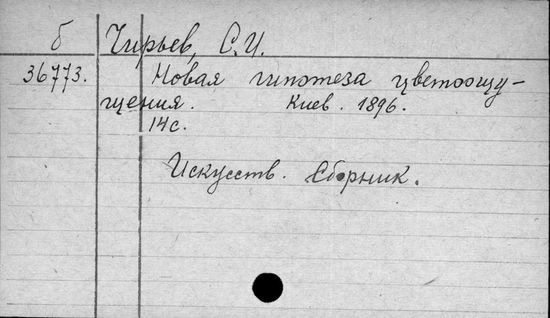 б Чирьев, С.И.
36773. Новая гипотеза цветоощу-
щения. Киев. 1896.
14с.
Искусств. Сборник.